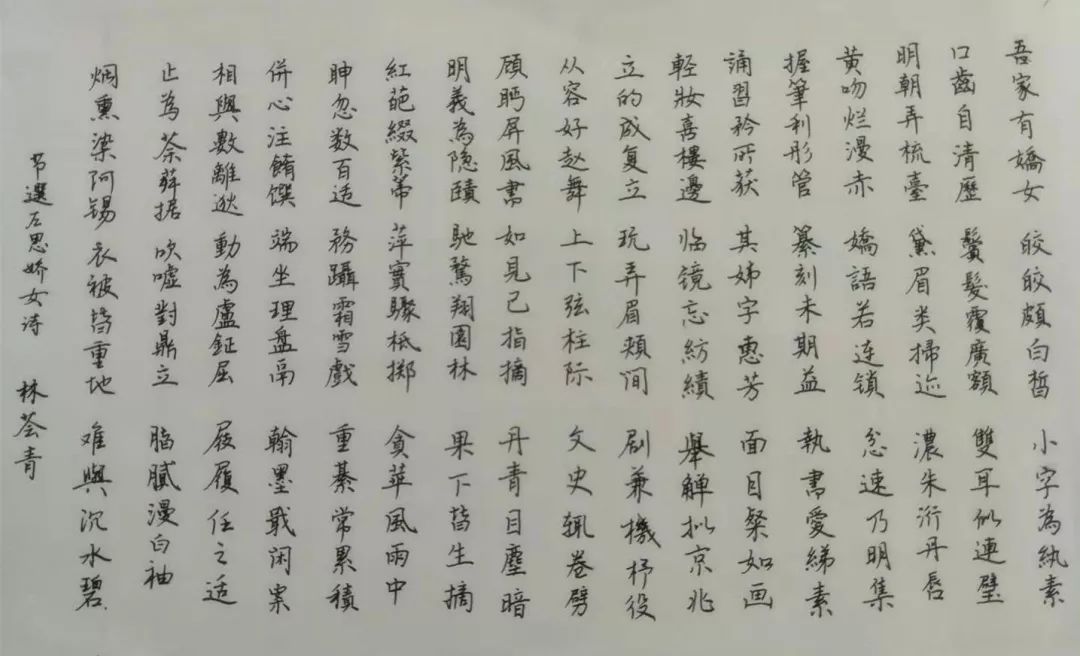 吾家有嬌女 皎皎頗白皙 小字為紈素
口齒自清歷 鬢髮覆廣額 雙耳似連璧
明朝弄梳臺 黛眉类掃迹 濃朱衍丹唇
黄吻烂漫赤 嬌語若连锁 忿速乃明集
握筆利彤管 篆刻未期益 執書愛綈素
誦習矜所获 其姊字惠芳 面目粲如画
輕妝喜樓邊 临镜忘紡績 舉觶拟京兆
立的成复立 玩弄眉頰间 劇兼機杼役
从容好赵舞 上下弦柱际 文史辄卷劈
顾眄屏风書 如見已指摘 丹青日塵暗
明義為隐賾 馳騖翔園林 果下皆生摘
紅葩綴紫蒂 萍實驟柢掷 貪華風雨中
眒忽数百适 務躡霜雪戲 重綦常累積
併心注餚馔 端坐理盘鬲 翰墨戢闲案
相與數離逖 動為盧鉦屈 屐履任之适
止為荼荈据 吹嘘對鼎立 脂膩漫白袖
烟熏染阿锡 衣被皆重地 难與沉水碧
节選左思娇女诗 林荟青